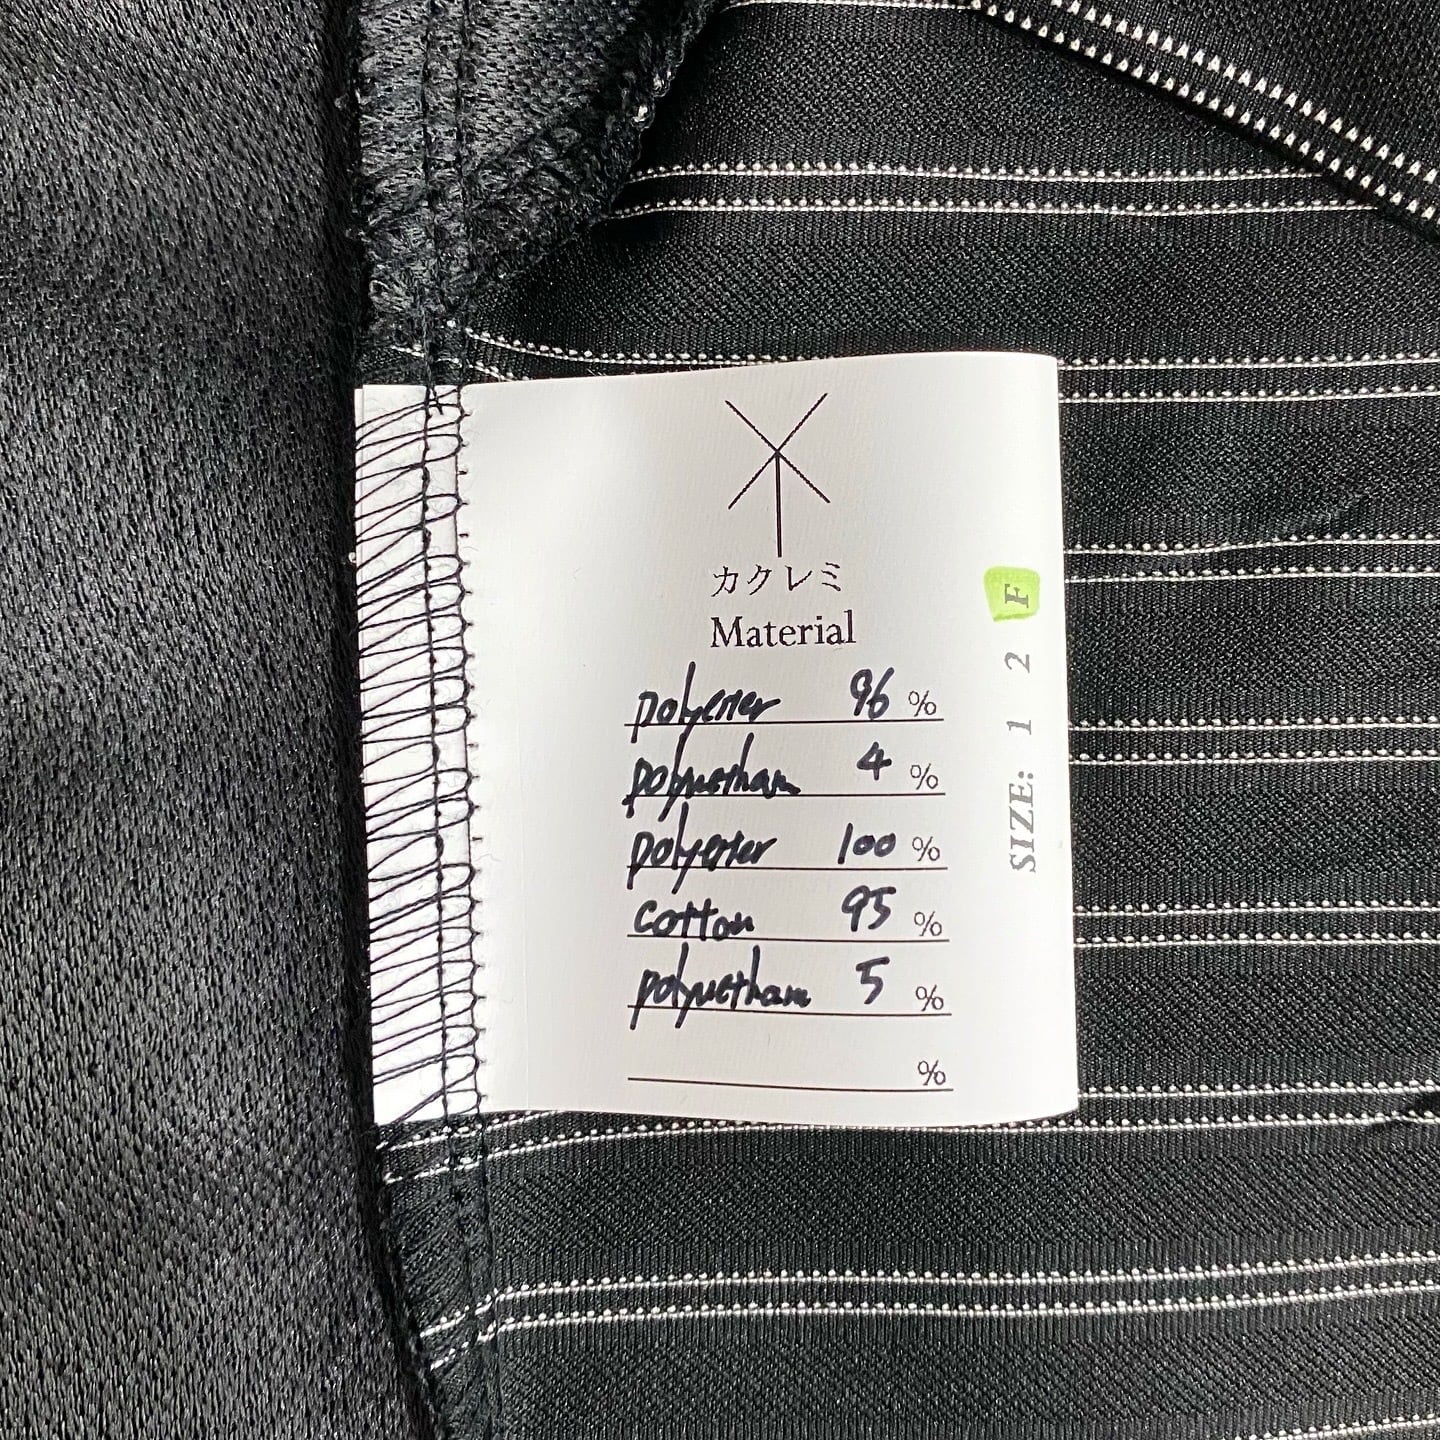 カクレミ
Material
polyester 96 %
polyurethan 4 %
polyester 100 %
cotton 95 %
polyurethan 5 %
%
SIZE: 1 2 F